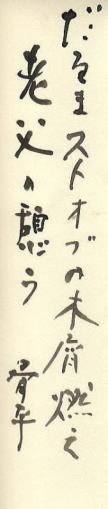 だるまストオブの木屑燃え
老父の憩う
骨平